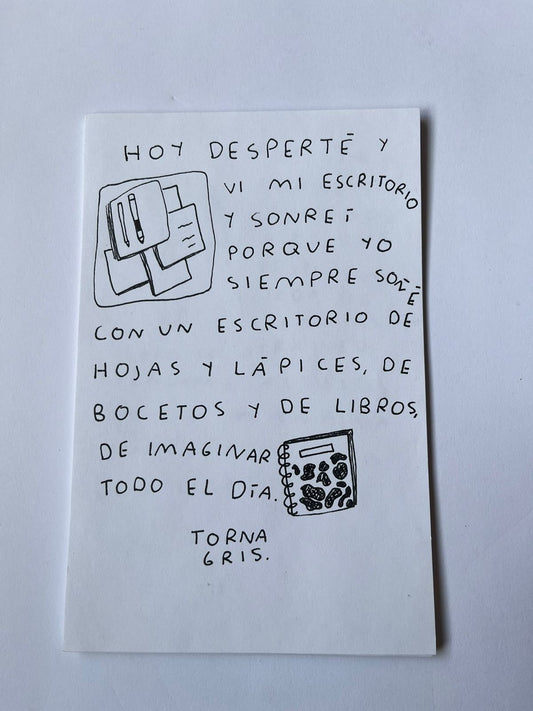 HOY DESPERTÉ Y
VI MI ESCRITORIO
Y SONREÍ
PORQUE YO
SIEMPRE SOÑÉ
CON UN ESCRITORIO DE
HOJAS Y LÁPICES, DE
BOCETOS Y DE LIBROS,
DE IMAGINAR
TODO EL DÍA.
TORNA
GRIS.